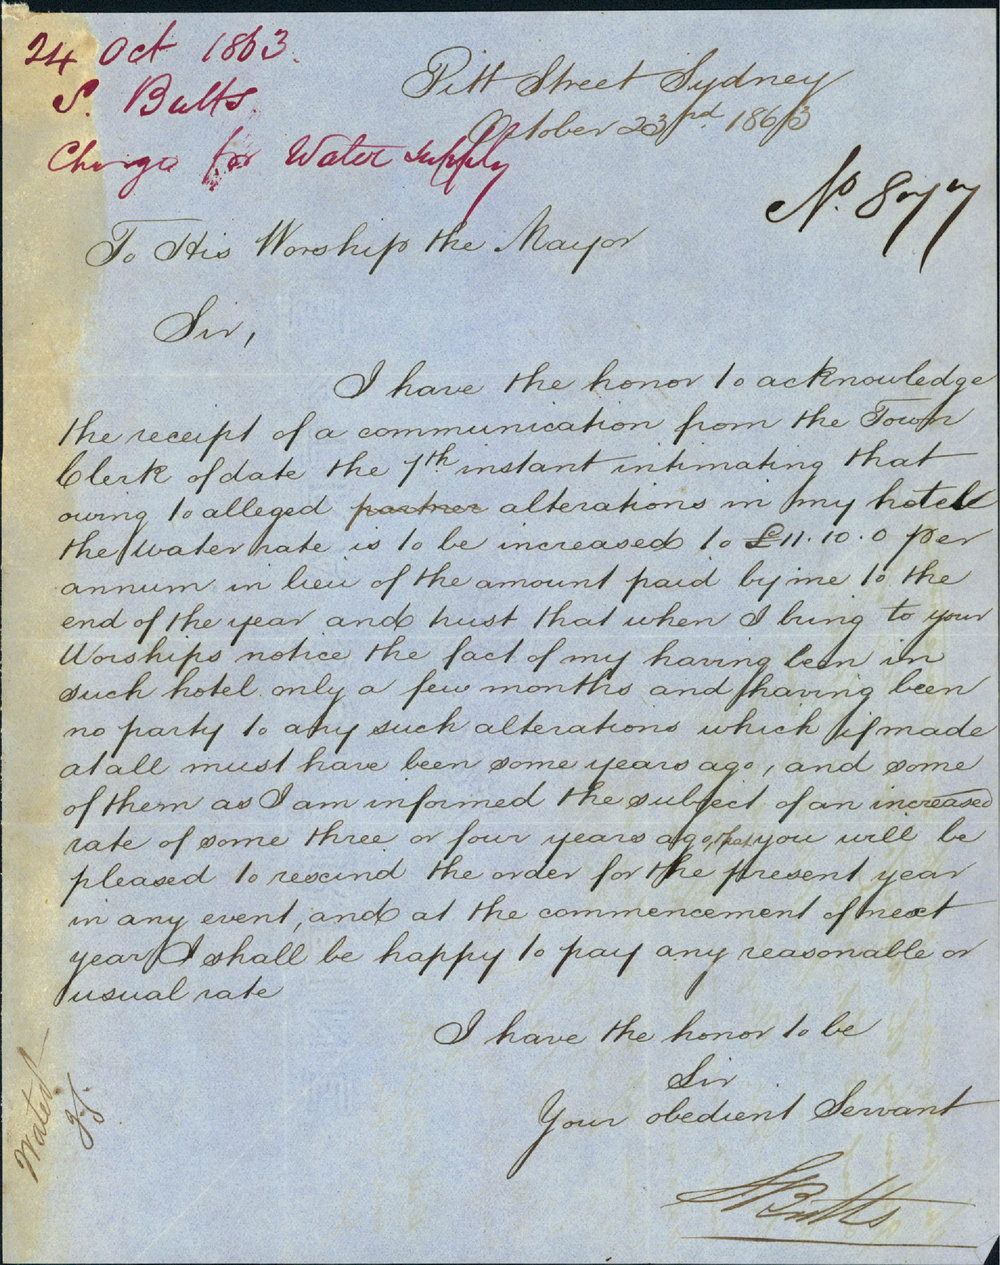 24 Oct 1863.
S. Butts.
Charge for Water supply
Pitt Street Sydney
October 23rd. 1863
No. 877
To His Worship the Mayor
Sir,
I have the honor to acknowledge
the receipt of a communication from the Town
Clerk of date the 7th instant intimating that
owing to alleged partner alterations in my hotel
the water rate is to be increased to £11.10.0 per
annum in lieu of the amount paid by me to the
end of the year and trust that when I bring to your
Worships notice the fact of my having been in
such hotel only a few months and having been
no party to any such alterations which if made
at all must have been some years ago, and some
of them as I am informed the subject of an increased
rate of some three or four years ago, that you will be
pleased to rescind the order for the present year
in any event, and at the commencement of next
year I shall be happy to pay any reasonable or
usual rate
I have the honor to be
Sir
Your obedient Servant
S Butts
Water